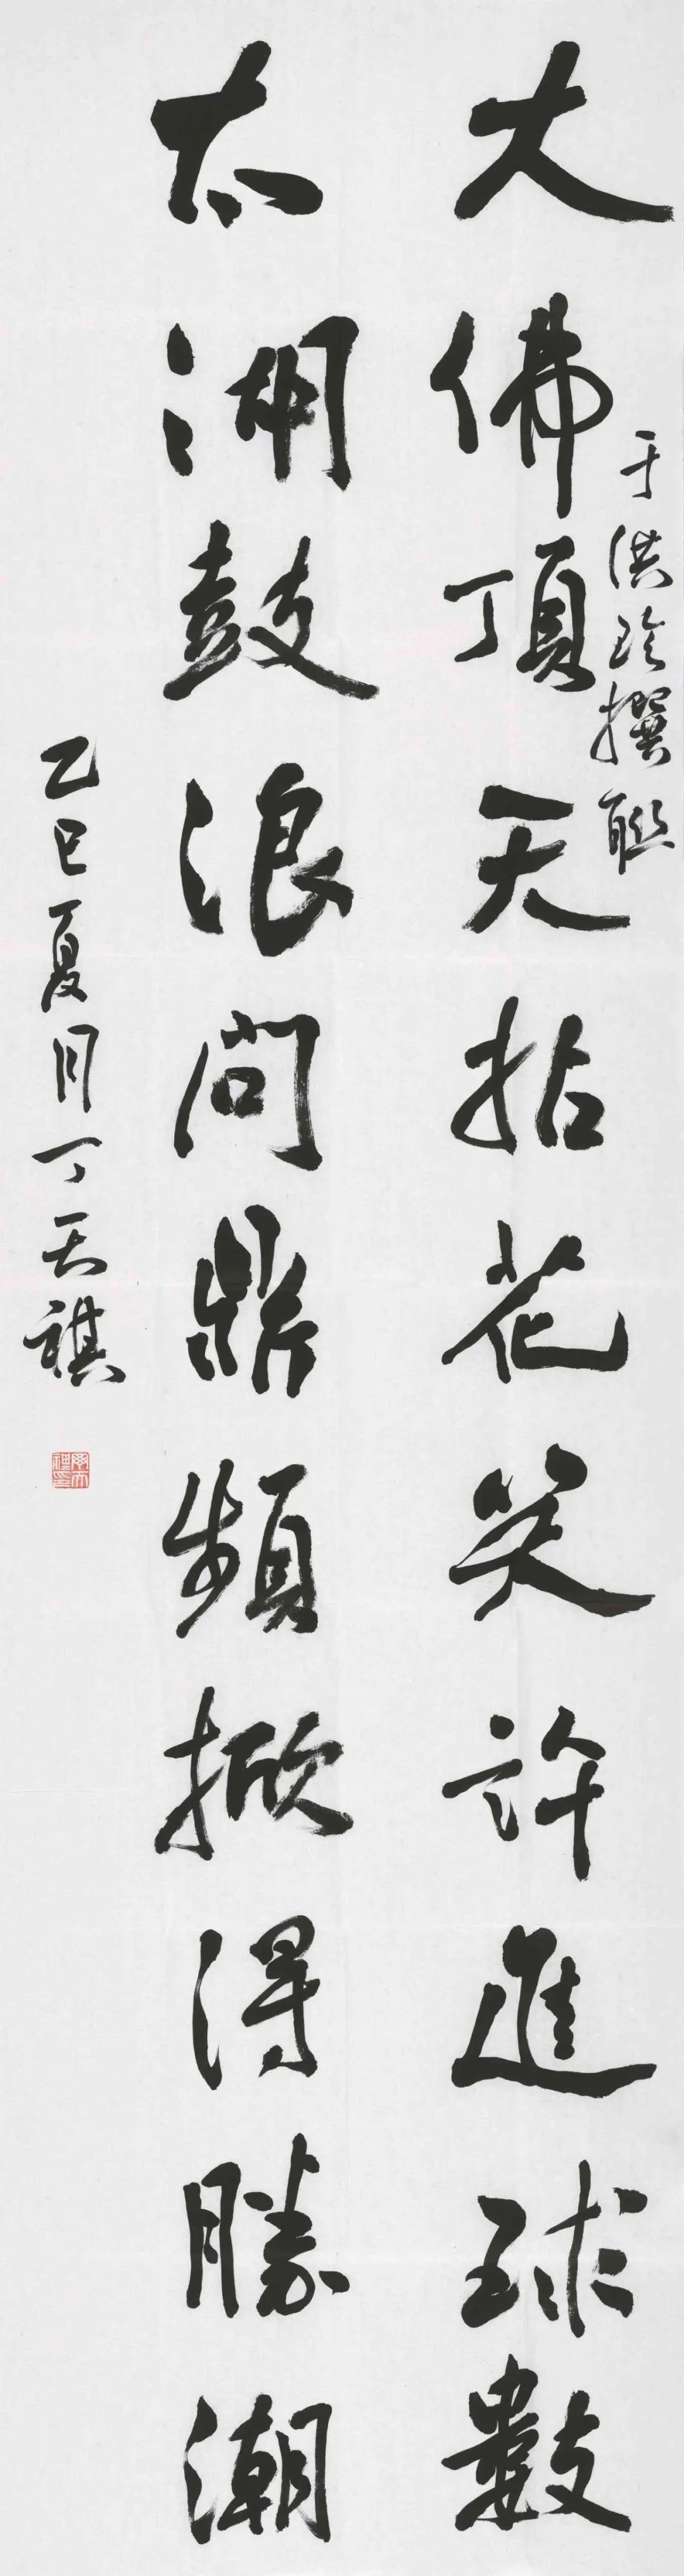 大佛頂天拈花笑許進球數
于洪玲撰聯
太湖鼓浪問鼎頻掀得勝潮
乙巳夏月丁天祺